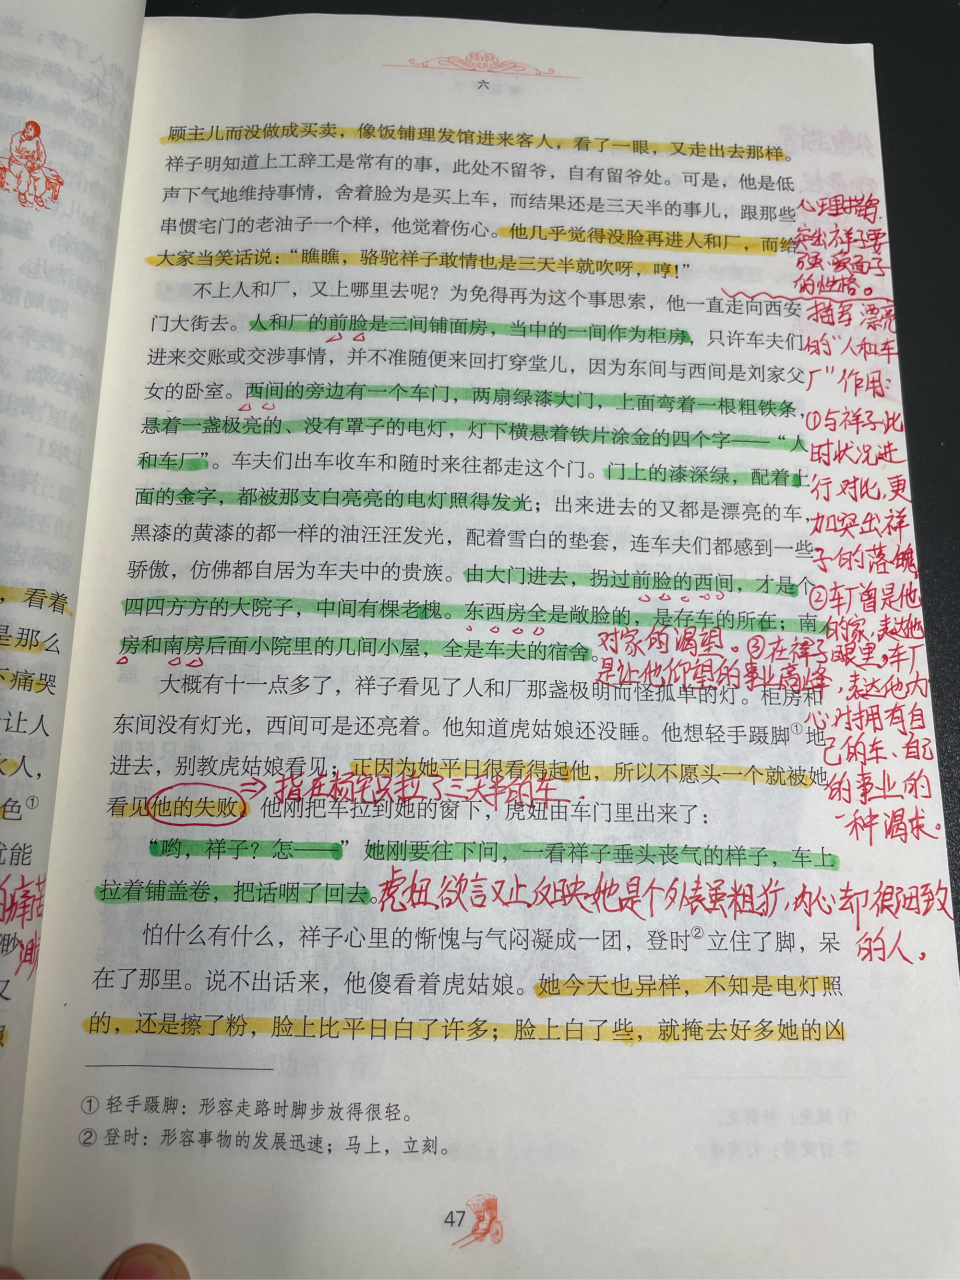 六
顾主儿而没做成买卖，像饭铺理发馆进来客人，看了一眼，又走出去那样。
祥子明知道上工辞工是常有的事，此处不留爷，自有留爷处。可是，他是低
声下气地维持事情，舍着脸为是买上车，而结果还是三天半的事儿，跟那些
串惯宅门的老油子一个样，他觉着伤心。他几乎觉得没脸再进人和厂，而给
大家当笑话说：“瞧瞧，骆驼祥子敢情也是三天半就吹呀，哼！”
不上人和厂，又上哪里去呢？为免得再为这个事思索，他一直走向西安
门大街去。人和厂的前脸是三间铺面房，当中的一间作为柜房，只许车夫们
进来交账或交涉事情，并不准随便来回打穿堂儿，因为东间与西间是刘家父
女的卧室。西间的旁边有一个车门，两扇绿漆大门，上面弯着一根粗铁条，
悬着一盏极亮的、没有罩子的电灯，灯下横悬着铁片涂金的四个字——“人
和车厂”。车夫们出车收车和随时来往都走这个门。门上的漆深绿，配着上
面的金字，都被那支白亮亮的电灯照得发光；出来进去的又都是漂亮的车，
黑漆的黄漆的都一样的油汪汪发光，配着雪白的垫套，连车夫们都感到一些
骄傲，仿佛都自居为车夫中的贵族。由大门进去，拐过前脸的西间，才是个
四四方方的大院子，中间有棵老槐。东西房全是敞脸的，是存车的所在；南
房和南房后面小院里的几间小屋，全是车夫的宿舍。
大概有十一点多了，祥子看见了人和厂那盏极明而怪孤单的灯。柜房和
东间没有灯光，西间可是还亮着。他知道虎姑娘还没睡。他想轻手蹑脚①地
进去，别教虎姑娘看见；正因为她平日很看得起他，所以不愿头一个就被她
看见他的失败。他刚把车拉到她的窗下，虎妞由车门里出来了：
“哟，祥子？怎——”她刚要往下问，一看祥子垂头丧气的样子，车上
拉着铺盖卷，把话咽了回去。
怕什么有什么，祥子心里的惭愧与气闷凝成一团，登时②立住了脚，呆
在了那里。说不出话来，他傻看着虎姑娘。她今天也异样，不知是电灯照
的，还是擦了粉，脸上比平日白了许多；脸上白了些，就掩去好多她的凶
① 轻手蹑脚：形容走路时脚步放得很轻。
② 登时：形容事物的发展迅速；马上，立刻。
47
心理描写，
突出祥子要
强、爱面子
的性格。
描写漂亮
的“人和车
厂”作用：
①与祥子此
时状况进
行对比，更
加突出祥
子的落魄
②车厂曾是他
的家，表达他
对家的渴望。③在祥子眼里，车厂
是让他仰望的事业高峰，表达他内
心对拥有自
己的车、自己
的事业的
一种渴求。
⇒指在杨宅只拉了三天半的车。
虎妞欲言又止反映她是个外表虽粗犷，内心却很细致
的人。
，看着
是那么
不痛哭
让人
人，
色①
尤能
痛苦
渺
又